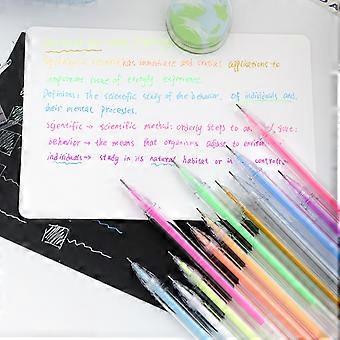 has immediate and crucial applications to
important issue of energy, experience.
Definition: The scientific study of the behavior, of individuals and,
their mental processes.
scientific → scientific method: orderly steps to an
behavior → the means that organisms adjust to
individuals → study in its natural habitat or in controll